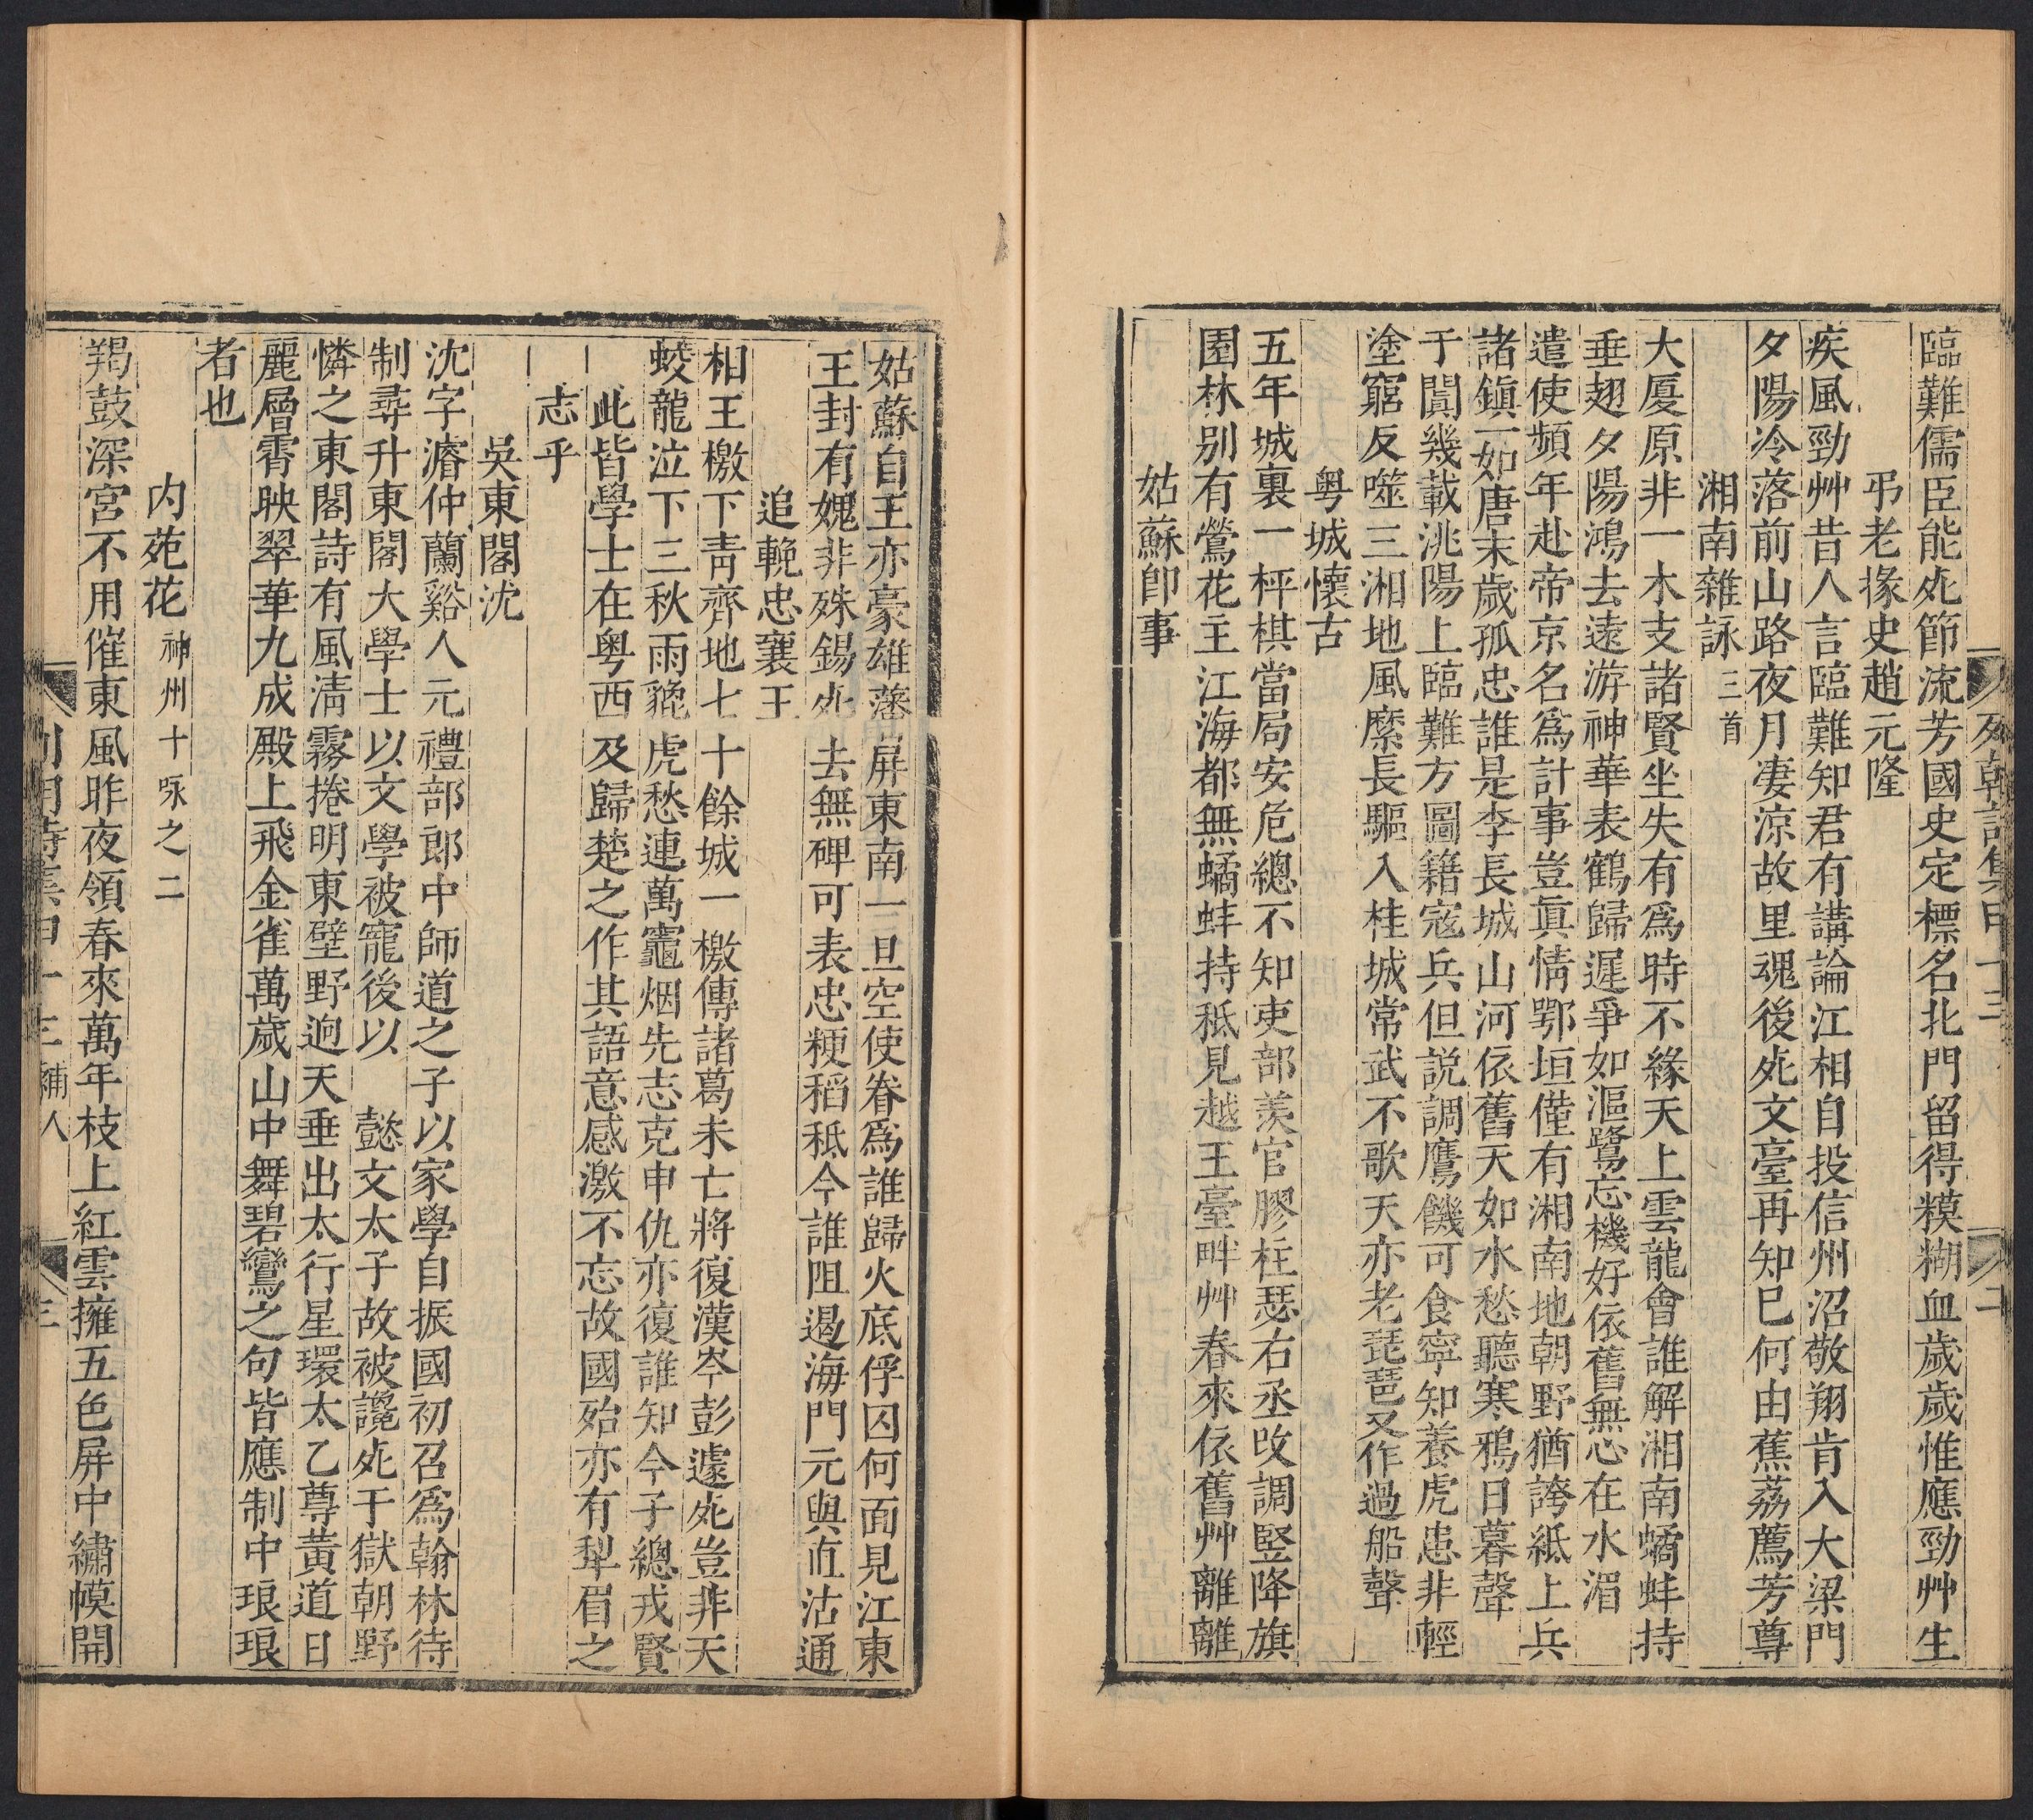 臨難儒臣能死節流芳國史定標名北門留得糢糊血歲歲惟應勁艸生
弔老掾史趙元隆
疾風勁艸昔人言臨難知君有講論江相自投信州沼敬翔肯入大梁門
夕陽冷落前山路夜月凄涼故里魂後死文臺再知已何由蕉荔薦芳尊
湘南雜詠三首
大厦原非一木支諸賢坐失有爲時不緣天上雲龍會誰解湘南蟠蚌持
垂翅夕陽鴻去遠游神華表鶴歸遲爭如漚鷺忘機好依舊無心在水湄
遣使頻年赴帝京名爲計事豈眞情鄂垣僅有湘南地朝野猶誇紙上兵
諸鎭一如唐末歲孤忠誰是李長城山河依舊天如水愁聽寒鴉日暮聲
于闐幾載洮陽上臨難方圖籍寇兵但説調鷹饑可食寧知養虎患非輕
塗窮反噬三湘地風縻長驅入桂城常武不歌天亦老琵琶又作過船聲
粤城懷古
五年城裏一枰棋當局安危總不知吏部羨官膠柱瑟右丞改調竪降旗
園林别有鶯花主江海都無蟠蚌持秪見越王臺畔艸春來依舊艸離離
姑蘇卽事
姑蘇自王亦豪雄藩屏東南一旦空使眷爲誰歸火底俘囚何面見江東
王封有媿非殊錫死去無碑可表忠粳稻秪今誰阻遏海門元與直沽通
追輓忠襄王
相王檄下靑齊地七十餘城一檄傳諸葛未亡將復漢岑彭遽死豈非天
蛟龍泣下三秋雨貔虎愁連萬竈烟先志克申仇亦復誰知今子總戎賢
此皆學士在粤西及歸楚之作其語意感激不忘故國殆亦有犁眉之
志乎
吳東閣沈
沈字濬仲蘭谿人元禮部郎中師道之子以家學自振國初召爲翰林待
制尋升東閣大學士以文學被寵後以懿文太子故被讒死于獄朝野
憐之東閣詩有風清霧捲明東壁野迥天垂出太行星環太乙尊黃道日
麗層霄映翠華九成殿上飛金雀萬歲山中舞碧鸞之句皆應制中琅琅
者也
内苑花神州十咏之二
羯鼓深宮不用催東風昨夜領春來萬年枝上紅雲擁五色屏中繡幙開